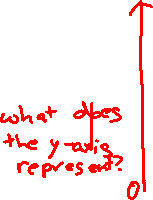 what does
the y-axis
represent?
0